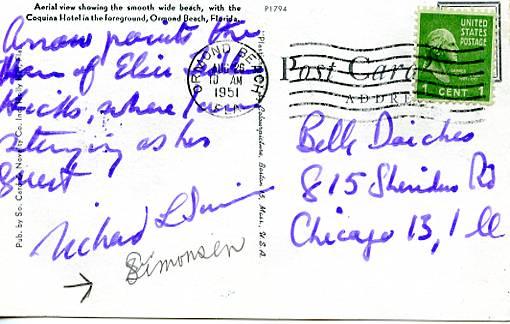 Aerial view showing the smooth wide beach, with the
Coquina Hotel in the foreground, Ormond Beach, Florida.
P1794
Arrow points the
Home of Elsie
Hicks, where I am
staying as her
guest
Richard L
Simonsen
Pub. by So. Card & Novelty Co. Inc.
Colourpicture, Boston 15, Mass., U.S.A.
ORMOND BEACH
AUG 26
10 AM
1951
FLA.
UNITED
STATES
POSTAGE
1 CENT 1
Post Card
ADDRE
Belle Daiches
815 Sheridan Rd
Chicago 13, Ill